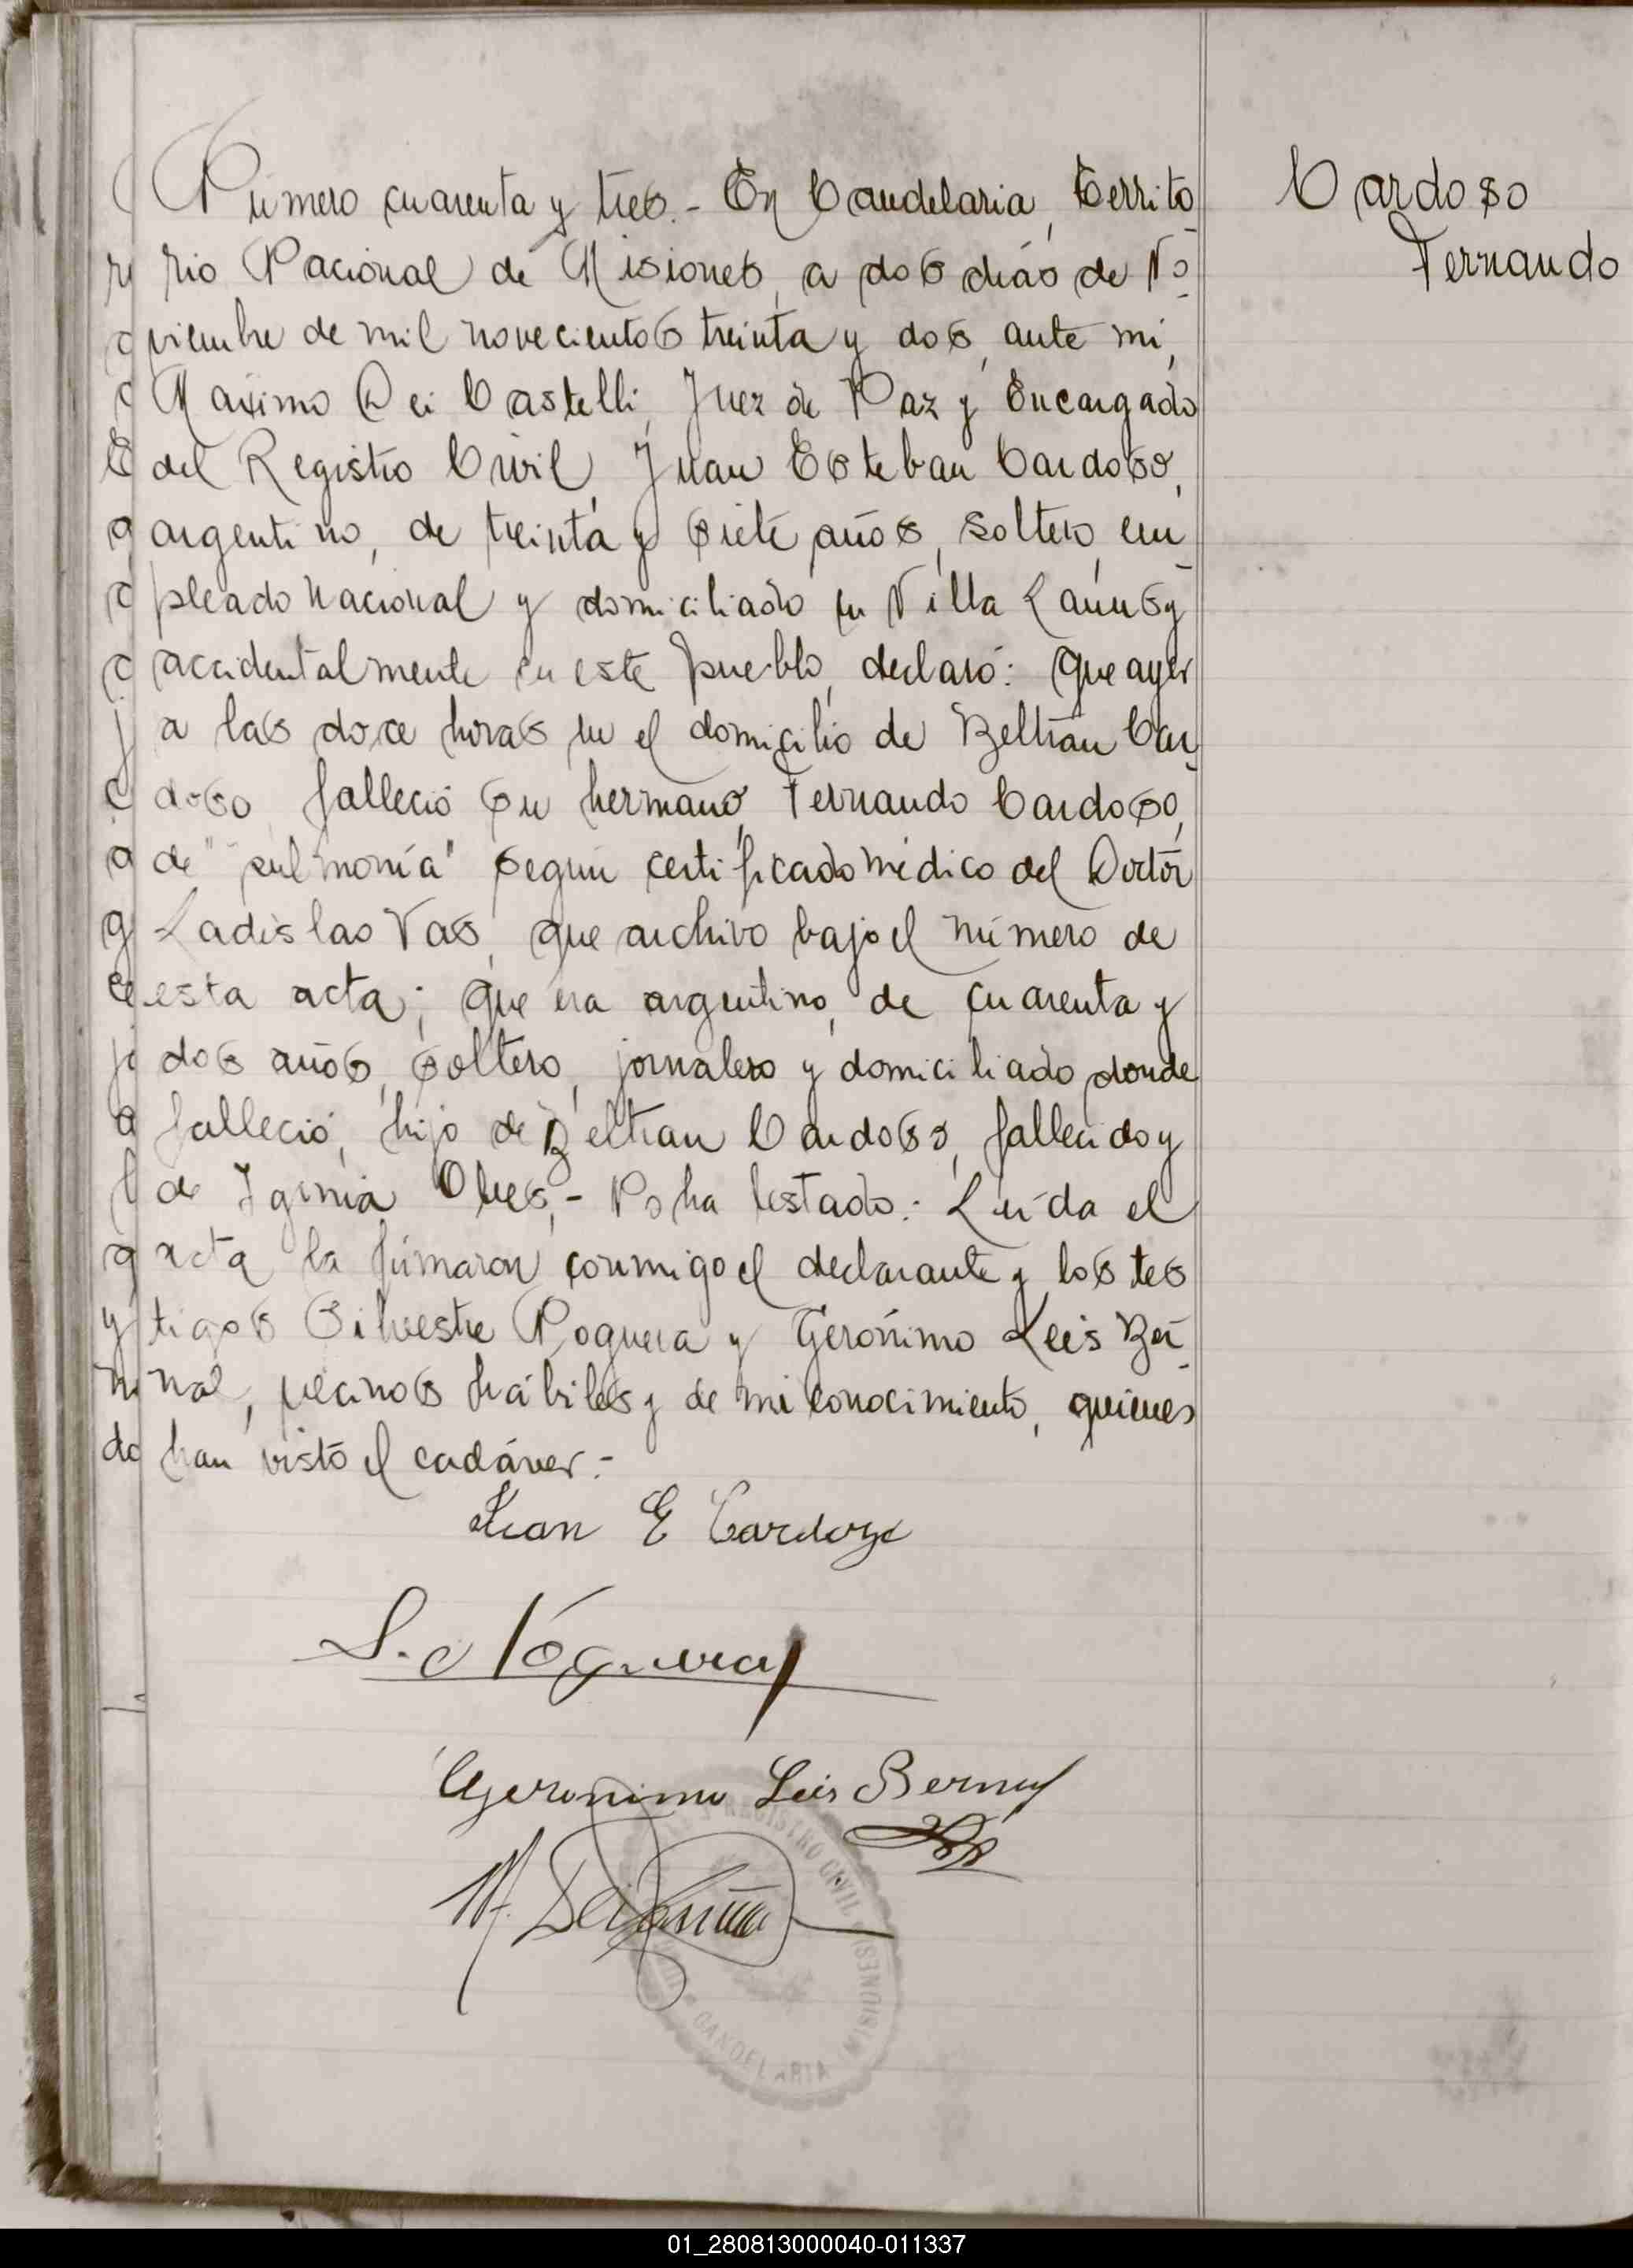 Cardoso
Fernando
Número cuarenta y tres.- En Candelaria, Territo
rio Nacional de Misiones, a dos días de No
viembre de mil novecientos treinta y dos, ante mi,
Máximo Dei Castelli, Juez de Paz y Encargado
del Registro Civil, Juan Esteban Cardoso,
argentino, de treinta y siete años, soltero, em
pleado nacional y domiciliado en Villa Lanús y
accidentalmente en este pueblo, declaró: Que ayer
a las doce horas en el domicilio de Beltrán Car
doso, falleció su hermano, Fernando Cardoso,
de "pulmonía" según certificado médico del Doctor
Ladislao Vas, que archivo bajo el número de
esta acta; que era argentino, de cuarenta y
dos años, soltero, jornalero y domiciliado donde
falleció, hijo de Beltran Cardoso, fallecido y
de .- No ha testado.- Leída el
acta la firmaron conmigo el declarante y los tes
tigos Silvestre Noguera y Gerónimo Leis Ber
nal, vecinos hábiles y de mi conocimiento, quienes
han visto el cadáver.-
Juan E Cardozo
S. Noguera
Geronimo Leis Bernal
M. Dei
REGISTRO CIVIL
CANDELARIA MISIONES
01_280813000040-011337